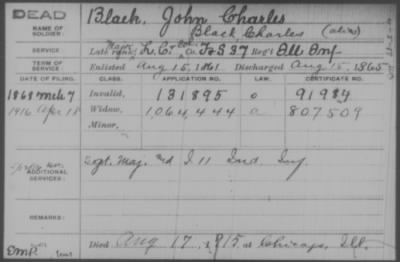 DEAD
NAME OF SOLDIER:
Black, John Charles
Black Charles (alias)
SERVICE:
Late rank, Lt. Col. Co. F&S 37 Reg't Ill Inf
TERM OF SERVICE:
Enlisted Aug 15, 1861 Discharged Aug 15, 1865
DATE OF FILING. CLASS. APPLICATION NO. LAW. CERTIFICATE NO.
1868 Mch 7 Invalid, 131895 o 91989
1916 Apr 18 Widow, 1,064,444 a 807509
Minor,
ADDITIONAL SERVICES:
Sgt. Maj. and I 11 Ind. Inf
REMARKS:
Died Aug 17, 1915 at Chicago, Ill.